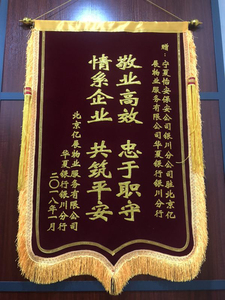 赠：宁夏怡安保安公司银川分公司驻北京亿
展物业服务有限公司华夏银行银川分行
敬业高效 忠于职守
情系企业 共筑平安
北京亿展物业服务有限公司
华夏银行银川分行
二〇一八年一月